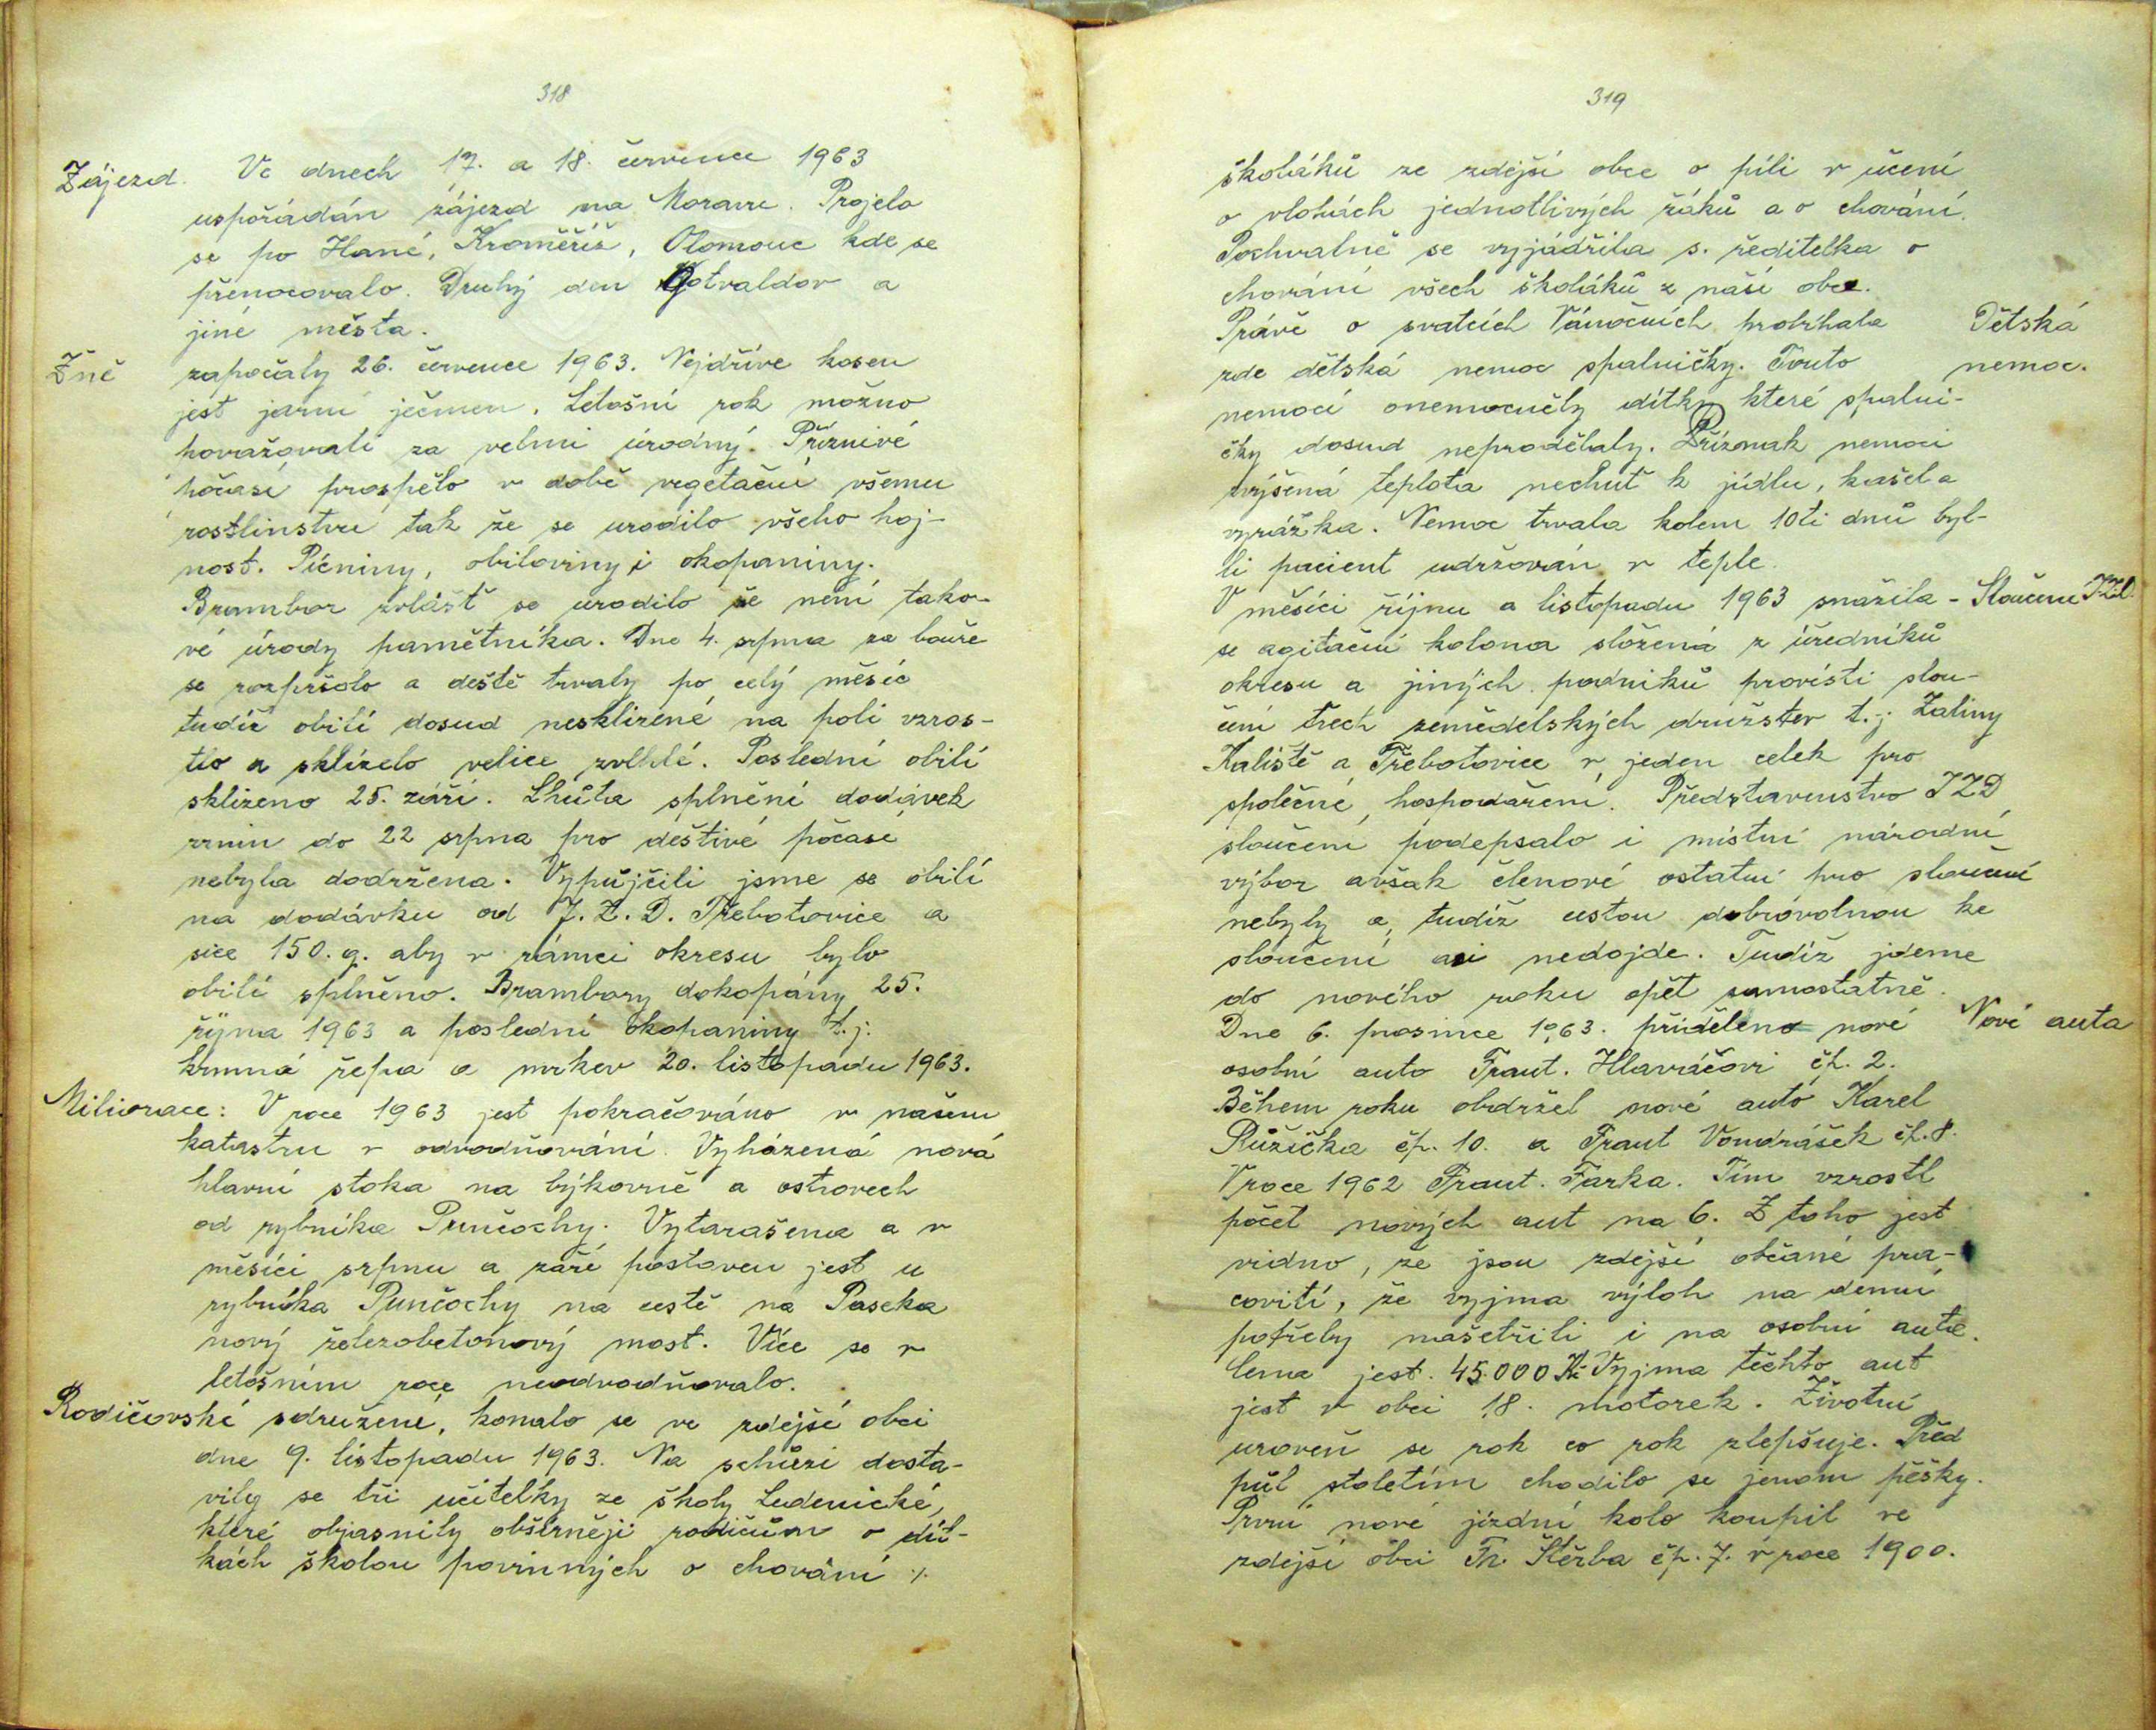 318
Zájezd. Ve dnech 17. a 18. července 1963
uspořádán zájezd na Moravu. Projelo
se po Hané, Kroměříš, Olomouc kde se
přenocovalo. Druhý den Gotvaldov a
jiné města.
Žně započaly 26. července 1963. Nejdříve kosen
jest jarní ječmen. Letošní rok možno
považovati za velmi úrodný. Příznivé
počasí prospělo v době vegetační všemu
rostlinstvu tak že se urodilo všeho hoj-
nost. Pícniny, obiloviny i okopaniny.
Brambor zvlášť se urodilo že není tako-
vé úrody pamětníka. Dne 4. srpna za bouře
se rozpršelo a deště trvaly po celý měsíc
tudíž obilí dosud nesklizené na poli vzros-
tlo a sklízelo velice zvlhlé. Poslední obilí
sklizeno 25. září. Lhůta splnění dodávek
zrnin do 22 srpna pro deštivé počasí
nebyla dodržena. Vypůjčili jsme se obilí
na dodávku od J.Z.D. Třebotovice a
sice 150. q. aby v rámci okresu bylo
obilí splněno. Brambory dokopány 25.
října 1963 a poslední okopaniny t.j.
krmná řepa a mrkev 20. listopadu 1963.
Miliorace: V roce 1963 jest pokračováno v našem
katastru v odvodňování. Vyházená nová
hlavní stoka na býkovně a ostrovech
od rybníka Punčochy. Vytarašena a v
měsíci srpnu a září postaven jest u
rybníka Punčochy na cestě na Paseka
nový železobetonový most. Více se v
letošním roce neodvodňovalo.
Rodičovské sdružení, konalo se ve zdejší obci
dne 9. listopadu 1963. Na schůzi dosta-
vily se tři učitelky ze školy Ledenické,
které objasnily obšírněji rodičům o dít-
kách školou povinných o chování ./.
319
školáků ze zdejší obce o píli v učení
o vlohách jednotlivých žáků a o chování.
Pochvalně se vyjádřila s. ředitelka o
chování všech školáků z naší obce.
Právě o svatcích Vánočních probíhala Dětská
zde dětská nemoc spalničky. Touto nemoc.
nemocí onemocněly dítky které spalni-
čky dosud neprodělaly. Příznak nemoci
zvýšená teplota nechuť k jídlu, kašel a
vyrážka. Nemoc trvala kolem 10ti dnů byl-
li pacient udržován v teple.
V měsíci říjnu a listopadu 1963 snažila - Sloučení JZD.
se agitační kolona složená z úředníků
okresu a jiných podniků provésti slou-
čení třech zemědelských družstev t.j. Zaliny
Kaliště a Třebotovice v jeden celek pro
společné hospodaření. Představenstvo JZD
sloučení podepsalo i místní národní
výbor avšak členové ostatní pro sloučení
nebyly a tudíž cestou dobrovolnou ke
sloučení asi nedojde. Tudíž jdeme
do nového roku opět samostatně.
Dne 6. prosince 1963. přiděleno nové Nové auta
osobní auto Frant. Hlaváčovi čp. 2.
Během roku obdržel nové auto Karel
Růžička čp. 10. a Frant Vondrášek čp. 8.
V roce 1962 Frant. Farka. Tím vzrostl
počet nových aut na 6. Z toho jest
vidno, že jsou zdejší občané pra-
covití, že vyjma výloh na denní
potřeby našetřili i na osobní auta.
Cena jest. 45.000 Kč Vyjma těchto aut
jest v obci 18. motorek. Životní
uroveň se rok co rok zlepšuje. Před
půl stoletím chodilo se jenom pěšky.
První nové jízdní kolo koupil ve
zdejší obci Fr. Štěrba čp. 7. v roce 1900.